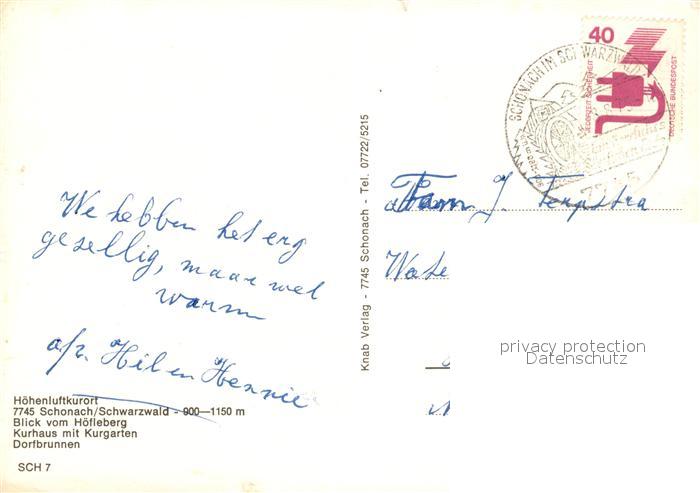 We hebben het erg
gezellig, maar wel
warm
Hil en Hennie
Höhenluftkurort
7745 Schonach/Schwarzwald - 900—1150 m
Blick vom Höfleberg
Kurhaus mit Kurgarten
Dorfbrunnen
SCH 7
Knab Verlag - 7745 Schonach - Tel. 07722/5215
40
JEDERZEIT SICHERHEIT
DEUTSCHE BUNDESPOST
SCHONACH IM SCHWARZWALD
Fam J. Terpstra
Wate
privacy protection
Datenschutz